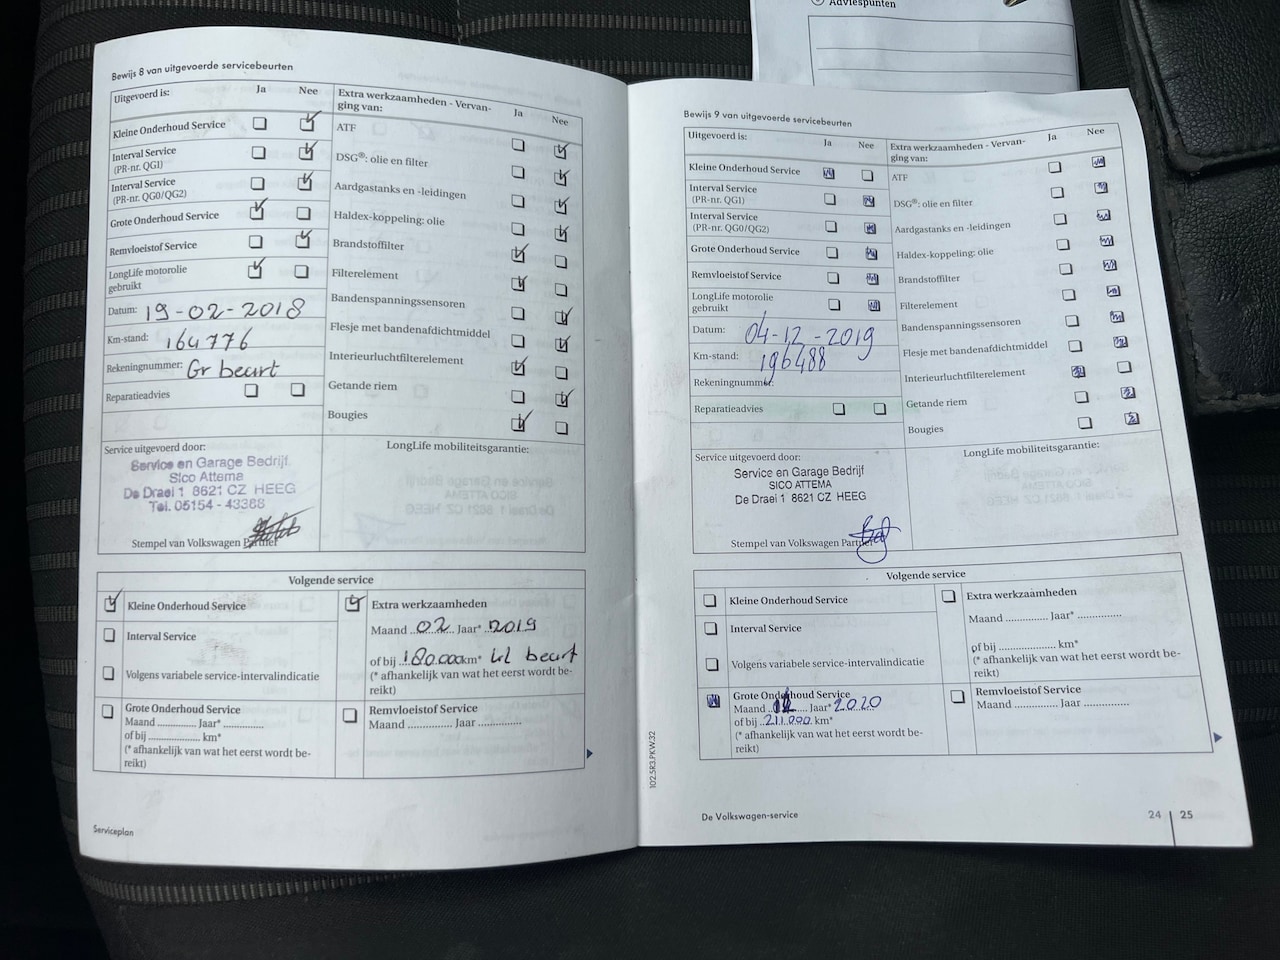 Adviespunten
Bewijs 8 van uitgevoerde servicebeurten
Uitgevoerd is: Ja Nee
Kleine Onderhoud Service
Interval Service
(PR-nr. QG1)
Interval Service
(PR-nr. QG0/QG2)
Grote Onderhoud Service
Remvloeistof Service
LongLife motorolie
gebruikt
Datum: 19-02-2018
Km-stand: 164776
Rekeningnummer: Gr beurt
Reparatieadvies
Extra werkzaamheden - Vervan-
ging van: Ja Nee
ATF
DSG®: olie en filter
Aardgastanks en -leidingen
Haldex-koppeling: olie
Brandstoffilter
Filterelement
Bandenspanningssensoren
Flesje met bandenafdichtmiddel
Interieurluchtfilterelement
Getande riem
Bougies
Service uitgevoerd door:
Service en Garage Bedrijf
Sico Attema
De Draei 1 8621 CZ HEEG
Tel. 05154 - 43388
Stempel van Volkswagen Partner
LongLife mobiliteitsgarantie:
Volgende service
Kleine Onderhoud Service
Interval Service
Volgens variabele service-intervalindicatie
Grote Onderhoud Service
Maand ............. Jaar* ...........
of bij ................. km*
(* afhankelijk van wat het eerst wordt be-
reikt)
Extra werkzaamheden
Maand 02 Jaar* 2019
of bij 180.000 km* kl beurt
(* afhankelijk van wat het eerst wordt be-
reikt)
Remvloeistof Service
Maand .............. Jaar ..............
Serviceplan
Bewijs 9 van uitgevoerde servicebeurten
Uitgevoerd is: Ja Nee
Kleine Onderhoud Service
Interval Service
(PR-nr. QG1)
Interval Service
(PR-nr. QG0/QG2)
Grote Onderhoud Service
Remvloeistof Service
LongLife motorolie
gebruikt
Datum: 04-12-2019
Km-stand: 196488
Rekeningnummer:
Reparatieadvies
Extra werkzaamheden - Vervan-
ging van: Ja Nee
ATF
DSG®: olie en filter
Aardgastanks en -leidingen
Haldex-koppeling: olie
Brandstoffilter
Filterelement
Bandenspanningssensoren
Flesje met bandenafdichtmiddel
Interieurluchtfilterelement
Getande riem
Bougies
Service uitgevoerd door:
Service en Garage Bedrijf
SICO ATTEMA
De Draei 1 8621 CZ HEEG
Stempel van Volkswagen Partner
LongLife mobiliteitsgarantie:
Volgende service
Kleine Onderhoud Service
Interval Service
Volgens variabele service-intervalindicatie
Grote Onderhoud Service
Maand 12 Jaar* 2020
of bij 211.000 km*
(* afhankelijk van wat het eerst wordt be-
reikt)
Extra werkzaamheden
Maand .............. Jaar* ..............
of bij .................... km*
(* afhankelijk van wat het eerst wordt be-
reikt)
Remvloeistof Service
Maand .............. Jaar ..............
102.5R3.PKW.32
De Volkswagen-service
24 | 25